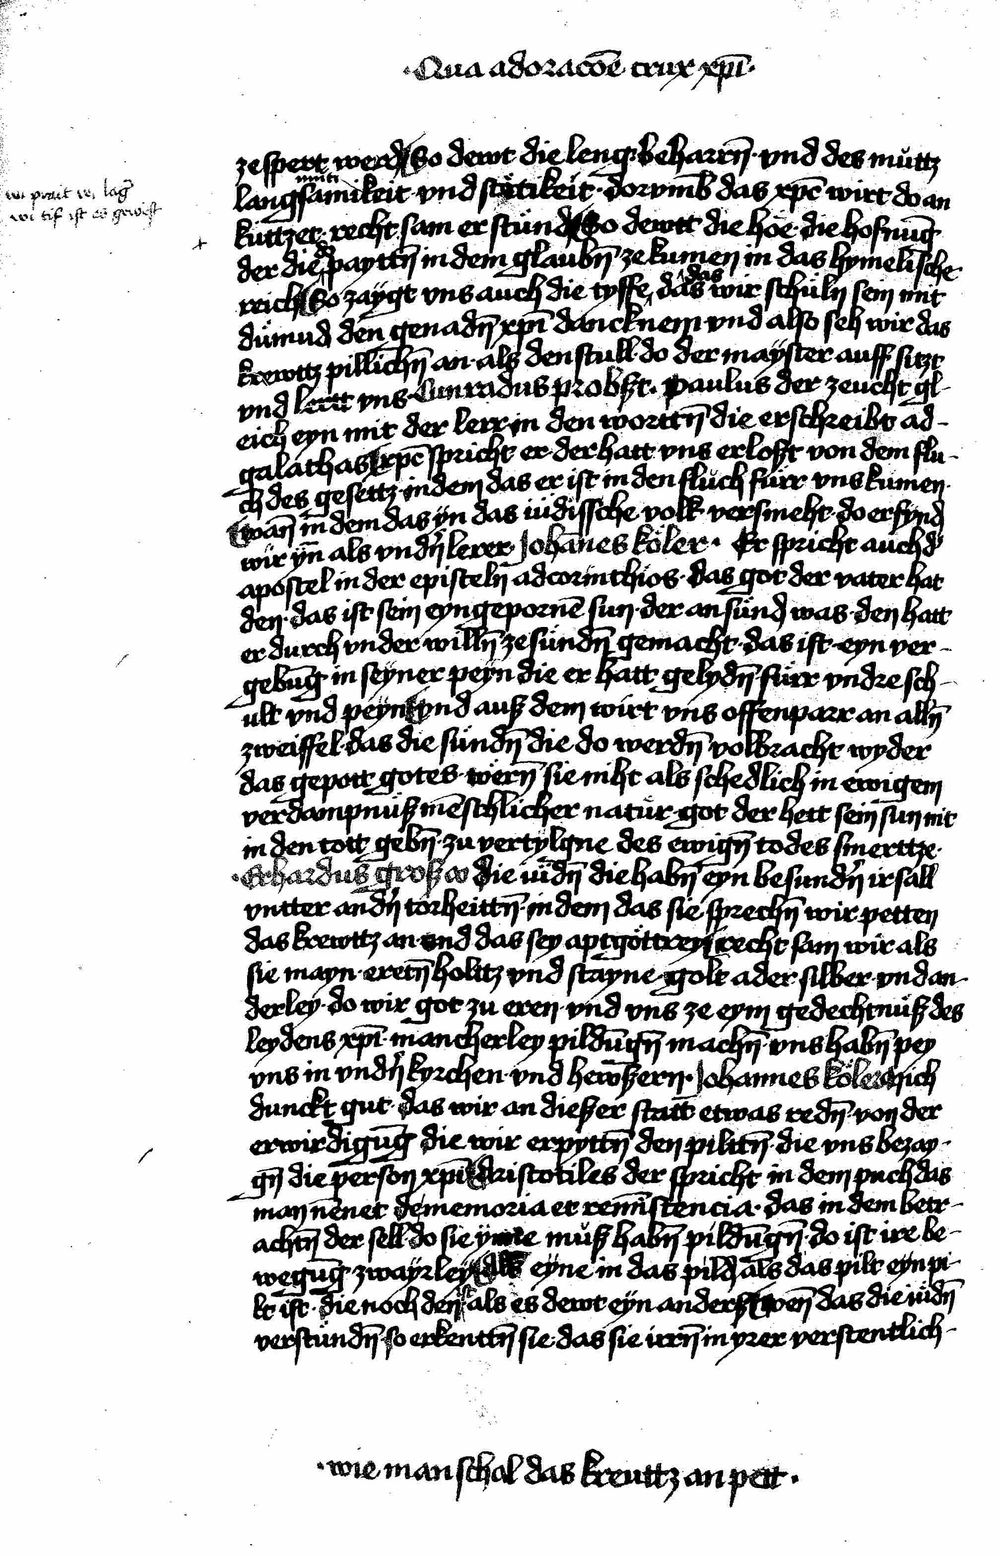 ·Qua adoracōe crux xp̄i·
ze spert werd So dewt die leng beharrn̄ vnd des mu̇ttz
muti
langsamikeit vnd stetikeit dorvmb das xp̄c wirt do an
wi prait wi laḡ
wi tif ist es gewest
kuttzet recht sam er stünd So dewtt die höe die hofnūg
der die do payttn̄ in dem glaubn̄ ze kumen in das hymelische
reich So zaygt vns auch die tyffe das wir schüln sein mit
dümud den genadn̄ xp̄i dancknem vnd also seh wir das
krewttz pillichn̄ an als den stull do der mayster auff sitzt
vnd lertt vns Cunradus probst. Paulus der zeucht gl
eich eyn mit der lerr in den worttn̄ die er schreibt ad-
galathas xp̄c spricht er der hatt vns erlost von dem flu-
ch des gesettz in dem das er ist in den fluch fürr vns kumen
wan̄ in dem das yn das iüdissche volk versmeht do er fynd
wir yn̄ als vndn̄ lerer Johānes köler · Er spricht auch d'
apostel in der episteln ad corinthios das got der vater hat
den das ist sein eyngepornē sun der an sünd was den hatt
er durch vnder willn̄ ze sündn̄ gemacht das ist eyn ver-
gebūg in seyner peyn die er hatt gelydn̄ fürr vndre sch-
ult vnd peyn vnd auß dem wirt vns offenparr an alln̄
zweiffel das die sündn̄ die do werdn̄ volbracht wyder
das gepott gotes wern̄ sie niht als schedlich in ewigem
verdampnüß mēschlicher natür got der hett sein sun nit
in den tott gebn̄ zu vertylgne des ewign̄ todes smerttze
·Erhardus groß die iüdn̄ die habn̄ eyn besundn̄ irsall
vntter andn̄ torheittn̄ in dem das sie sprechn̄ wir petten
das krewttz an vnd das sey aptgöttrey recht sam wir als
sie mayn eretn̄ holttz vnd stayne golt ader silber vnd an-
derley do wir got zu eren vnd vns ze eym gedechtnüß des
leydens xp̄i mancherley pildūgn̄ machn̄ vns habn̄ pey
vns in vndn̄ kyrchen vnd hewßern Johannes köler mich
dunckt gut das wir an dießer statt etwas redn̄ von der
erwirdigūg die wir erpyttn̄ den pilttn̄ die vns bezay-
gn̄ die person xp̄i Aristotiles der spricht in dem puch das
man nēnet de memoria et reminstencia das in dem betr-
achtn̄ der sell do sie ymte müß habn̄ pildūgn̄ do ist ire be-
wegūg zwayrley eyne in das pild als das pilt eyn pi-
lt ist die noch den als es dewt eyn anderß wen̄ das die iüdn̄
verstündn̄ so erkenttn̄ sie das sie irrn̄ in yrer verstentlich-
·wie man schal das kreuttz an pett·